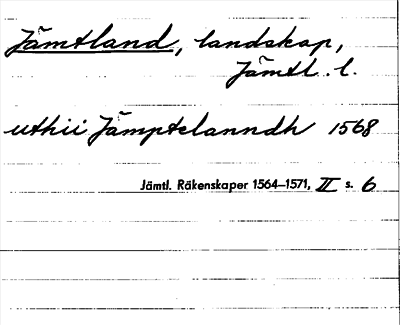 Jämtland, landskap,
Jämtl. l.
uthii Jämptelanndh 1568
Jämtl. Räkenskaper 1564–1571, II s. 6